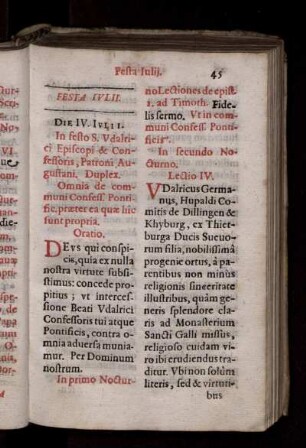 Festa Iulij.
45
FESTA IVLII.
DIE IV. IVLII.
In festo S. Vdalri-
ci Episcopi & Con-
fessoris, Patroni Au-
gustani. Duplex.
Omnia de com-
muni Confess. Ponti-
fic. præter ea quæ hîc
sunt propria.
Oratio.
DEVS qui conspi-
cis, quia ex nulla
nostra virtute subsi-
stimus: concede pro-
pitius; vt interces-
sione Beati Vdalrici
Confessoris tui atque
Pontificis, contra o-
mnia aduersa munia-
mur. Per Dominum
nostrum.
In primo Noctur-
no Lectiones de epist.
1. ad Timoth. Fide-
lis sermo. Vt in com-
muni Confess. Pon-
tificis.
In secundo No-
cturno.
Lectio IV.
VDalricus Germa-
nus, Hupaldi Co-
mitis de Dillingen &
Khyburg, ex Thiet-
burga Ducis Sueuo-
rum filia, nobilissimâ
progenie ortus, à pa-
rentibus non minùs
religionis sinceritate
illustribus, quàm ge-
neris splendore cla-
ris ad Monasterium
Sancti Galli missus,
religioso cuidam vi-
ro ibi erudiendus tra-
ditur. Vbi non solùm
literis, sed & virtuti-
bus